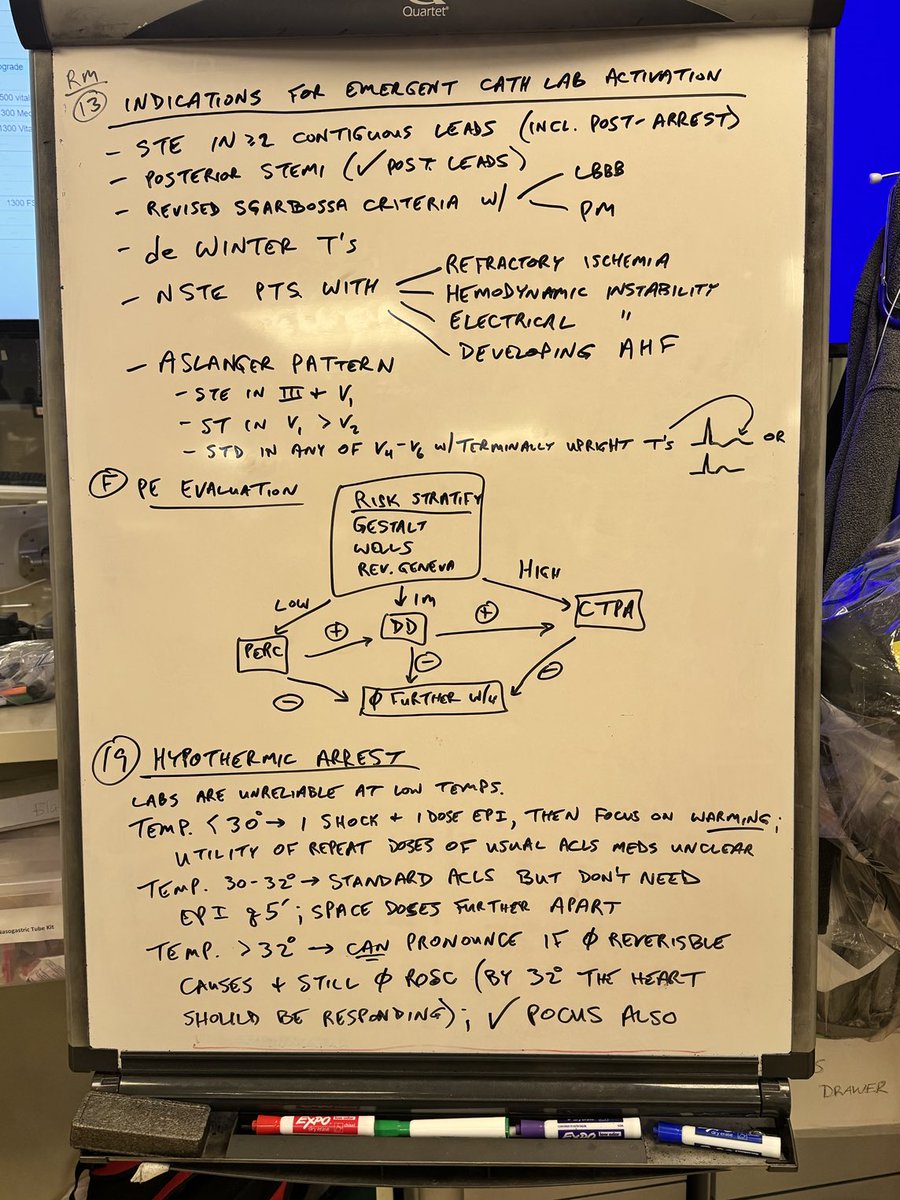 Quartet
RM
13 INDICATIONS FOR EMERGENT CATH LAB ACTIVATION
- STE IN ≥2 CONTIGUOUS LEADS (INCL. POST-ARREST)
- POSTERIOR STEMI (✓ POST. LEADS)
- REVISED SGARBOSSA CRITERIA W/ LBBB
PM
- de WINTER T'S
- NSTE PTS. WITH REFRACTORY ISCHEMIA
HEMODYNAMIC INSTABILITY
ELECTRICAL "
DEVELOPING AHF
- ASLANGER PATTERN
- STE IN III + V1
- ST IN V1 > V2
- STD IN ANY OF V4-V6 W/ TERMINALLY UPRIGHT T'S OR
F PE EVALUATION
RISK STRATIFY
GESTALT
WELLS
REV. GENEVA
LOW
IM
HIGH
PERC
+
DD
+
CTPA
-
-
-
Ø FURTHER W/U
19 HYPOTHERMIC ARREST
LABS ARE UNRELIABLE AT LOW TEMPS.
TEMP. < 30° → 1 SHOCK + 1 DOSE EPI, THEN FOCUS ON WARMING;
UTILITY OF REPEAT DOSES OF USUAL ACLS MEDS UNCLEAR
TEMP. 30-32° → STANDARD ACLS BUT DON'T NEED
EPI q 5'; SPACE DOSES FURTHER APART
TEMP. > 32° → CAN PRONOUNCE IF Ø REVERISBLE
CAUSES + STILL Ø ROSC (BY 32° THE HEART
SHOULD BE RESPONDING); ✓ POCUS ALSO
ograde
500 vital
1300 Vita
1300 FS
Nasogastric Tube Kit
DRAWER
EXPO
EXPO